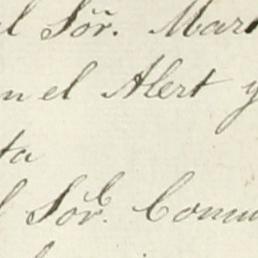 el Sõr. Mar
n el Alert y
ta
l Sõr. Comu